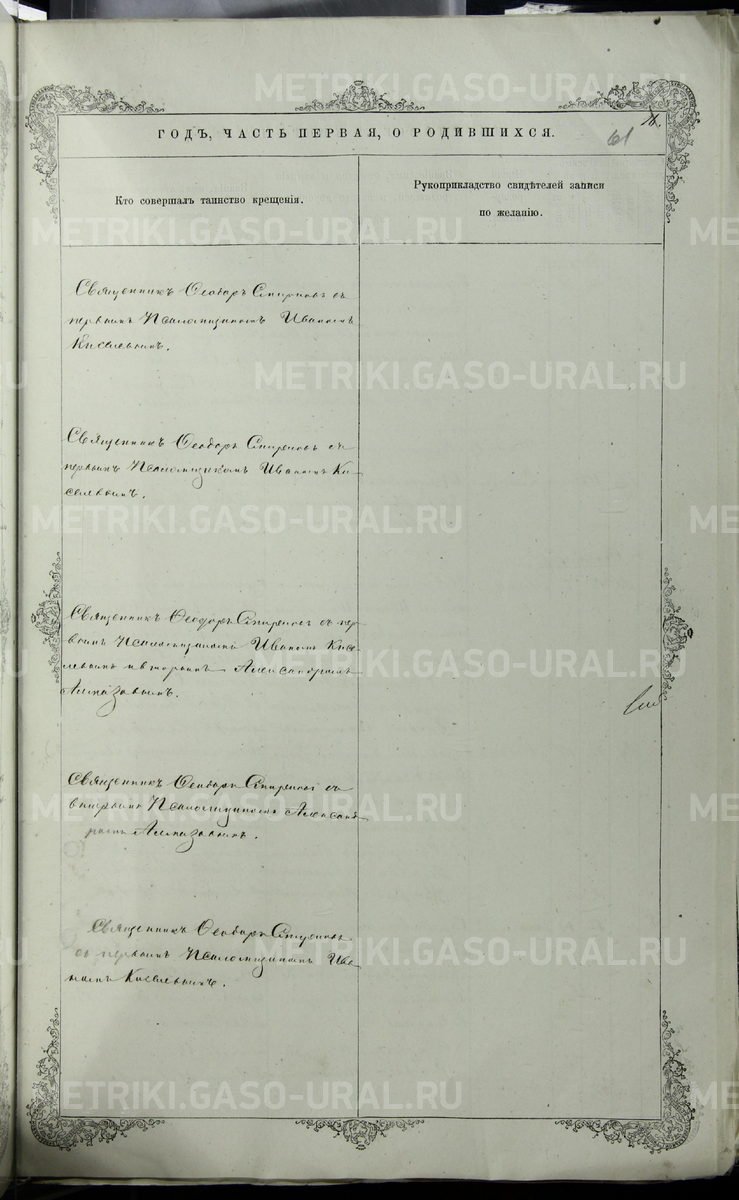 METRIKI.GASO-URAL.RU
ГОДЪ, ЧАСТЬ ПЕРВАЯ, О РОДИВШИХСЯ.
61
Кто совершалъ таинство крещенія.
Рукоприкладство свидѣтелей записи
по желанію.
Священникъ Ѳеодоръ Спиринъ съ
первымъ Псаломщикомъ Иваномъ
Киселевымъ.
Священникъ Ѳеодоръ Спиринъ съ
первымъ Псаломщикомъ Иваномъ Ки-
селевымъ.
Священникъ Ѳеодоръ Спиринъ съ пер
вымъ Псаломщикомъ Иваномъ Кисе-
левымъ и вторымъ Александромъ
Алмазовымъ.
Священникъ Ѳеодоръ Спиринъ съ
вторымъ Псаломщикомъ Александ-
ромъ Алмазовымъ.
Священникъ Ѳеодоръ Спиринъ
съ первымъ Псаломщикомъ Ива
номъ Киселевымъ.